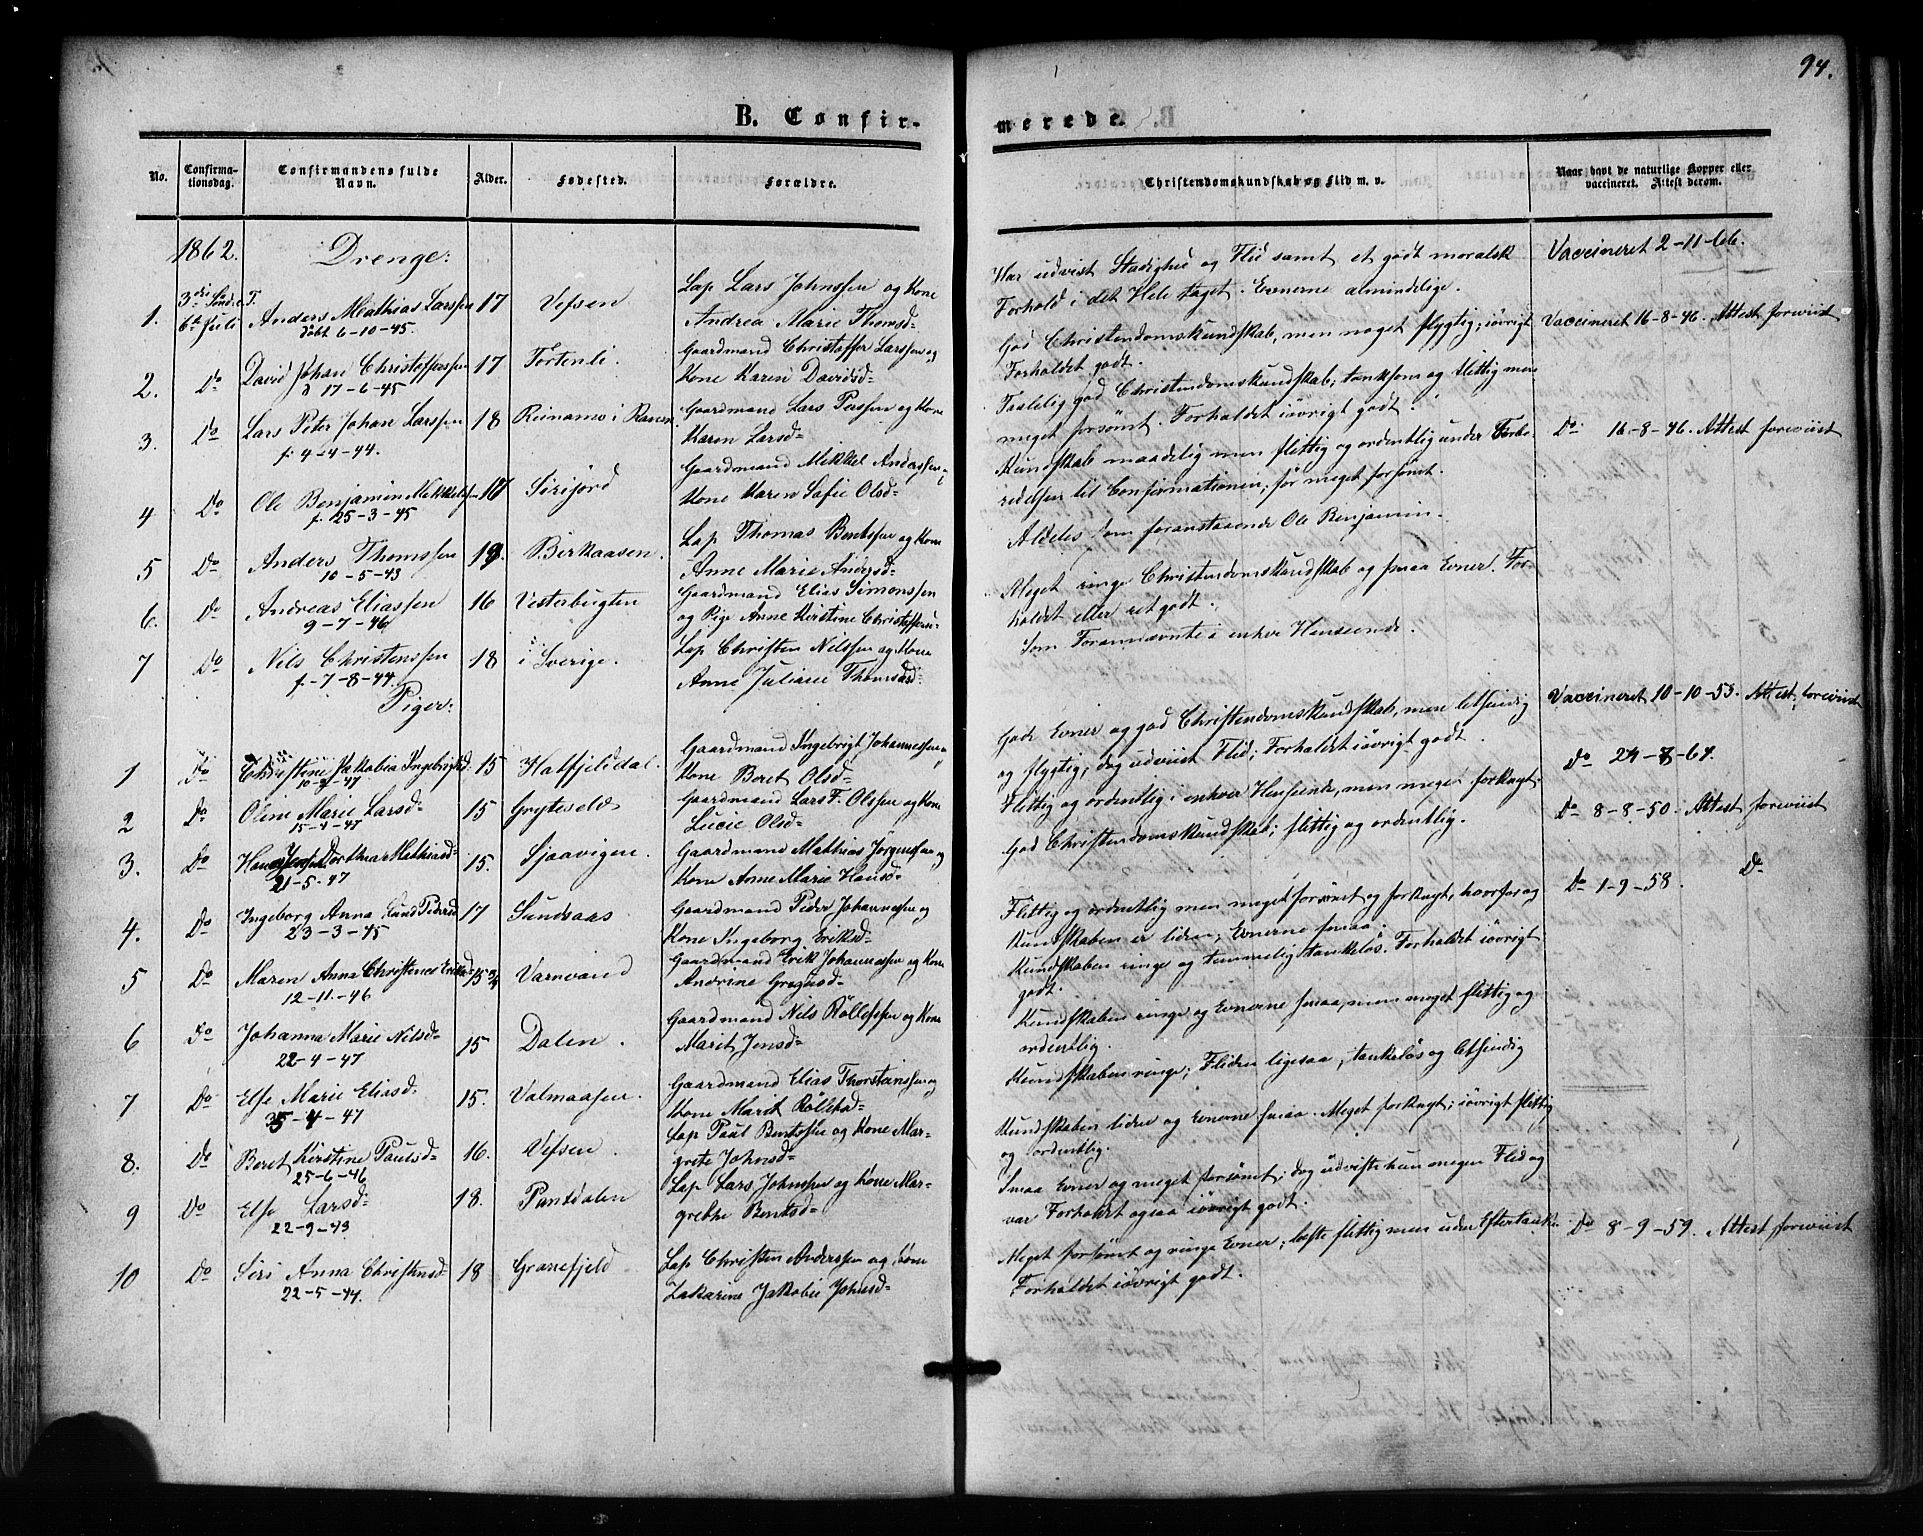 94.
B. Confirmerede.
No. Confirmationsdag. Confirmandens fulde Navn. Alder. Fødested. Forældre. Christendomskundskab og Flid m. v. Naar havt de naturlige Kopper eller vaccineret. Attest derom.
1862. Drenge:
1. 6te Juli Anders Mathias Larssen 17 Vefsen Lap Lars Johnssen og Kone
født 6-10-45. Andrea Marie Thomsd-
Har udvist Stadighed og Flid samt et godt moralsk
Forhold i det Hele taget. Evnerne almindelige.
Vaccineret 2-11-
2. Do David Johan Christoffersen 17 Tortenli. Gaardmand Christoffer Larssen og
17-6-45 Kone Karen Davidsd-
God Christendomskundskab, men noget flygtig; iøvrigt
Forholdet godt.
Vaccineret 16-8-46. Attest foreviist
3. Do Lars Peter Johan Larssen 18 Reinamo i Ranen Gaardmand Lars og Kone
f. 4-4-44. Karen Larsd-
Taalelig god Christendomskundskab; tanksom og flittig men
meget forsømt. Forholdet iøvrigt godt.
Do 16-8-46. Attest foreviist
4 Do Ole Benjamin Mikkelsen 17 Sirijord Gaardmand Mikkel Andersen
f. 25-3-45 Kone Karen Sofie Olsd-
Kundskab maadelig men flittig og ordentlig under Forberedelsen til Confirmationen; før meget forsømt.
5 Do Anders Thomssen Birkaasen. Lap Thomas Bentssen og Kone
10-5-43 Anne Marie Andersd-
Aldeles som foranstaaende Ole Benjamin.
6. Do Andreas Eliassen 16 Vesterbugten Gaardmand Elias Simonssen
9-7-46 og Pige Anne Kirstine
Meget ringe Christendomskundskab og smaa Evner. Forholdet eller ret godt.
7 Do Nils Christenssen 18 i Sverige. Lap Christen Nilssen og Kone
f. 7-8-44. Anne Juliane Thomasd-
Som Forannævnte i enhver Henseende.
Piger:
1 Do Christine Jakobia Ingebrigtsd- 15 Hatfjeldal. Gaardmand Ingebrigt Johannessen
Kone Beret Olsd-
Gode Evner og god Christendomskundskab, men letsindig
og flygtig; dog udviist Flid; Forholdet iøvrigt godt.
Vaccineret 10-10-53. Attest foreviist
2 Do Oline Marie Larsd- 15 Grytselv Gaardmand Lars F. Olssen og Kone
15-4-47 Lucie Olsd-
Flittig og ordentlig i enhver Henseende, men meget forknyt.
Do 24-8-61.
3. Do Dorthea Mathiasd- 15. Sjaavigen. Gaardmand Mathias Jørgenssen og
21-5-47 Kone Anne Marie Hansd-
God Christendomskundskab; flittig og ordentlig.
Do 8-8-50. Attest foreviist
4. Do Ingeborg Anna Pedersd 17 Sundsaas Gaardmand Peder Johannessen og
23-3-45 Kone Ingeborg Eriksd-
Flittig og ordentlig men meget forsømt og forknyt, hvorfor og
Kundskaben er liden; Evnerne smaa.
Do 1-9-58. Do
5 Do Maren Anna Christense Eriksd- 15 3/4 Varnvand Gaardmand Erik Johannessen og Kone
12-11-46 Andrine Gregusd-
Kundskaben ringe og temmelig tankeløs. Forholdet iøvrigt
godt.
6 Do Johanna Marie Nilsd- 15 Dalen. Gaardmand Nils Rølloffsen og Kone
22-4-47 Marit Jensd-
Kundskaben ringe og Evnerne smaa, men meget flittig og
ordentlig.
7 Do Else Marie Eliasd- 15. Valmaasen. Gaardmand Elias Thorstainssen og
4-47 Kone Marit
Kundskaben ringe; Fliden ligesaa; tankeløs og letsindig
8. Do Beret Kirstine Paulsd- 16. Vefsen. Lap Paul Bentssen og Kone Mar-
25-6-46 grete Johnsd-
Kundskaben liden og Evnerne smaa. Meget forknyt; iøvrigt flittig
og ordentlig.
9 Do Else Larsd- 18. Pantdalen Lap Lars Johnssen og Kone Mar-
22-9-43 grethe Bentsd-
Smaa Evner og meget forsømt; dog udviste hun megen Flid og
var Forholdet ogsaa iøvrigt godt.
10 Do Siri Anna Christensd- 18 Granefjeld Lap Christen Anderssen og Kone
22-5-44. Zakarine Jakobie Johnsd-
Meget forsømt og ringe Evner; læste flittig men uden Eftertanke.
Forholdet iøvrigt godt.
Do 8-9-59. Attest foreviist